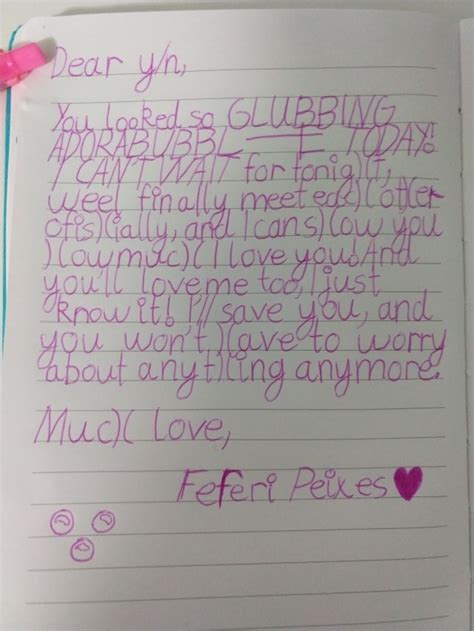 Dear y/n,
You looked so GLUBBING
ADORABUBBL——E TODAY!
I CAN'T WAIT for tonig)(t,
weel finally meet eac)( ot)(er
ofis)(ially, and I can s)(ow you
)(ow muc)( I love you! And
you'll love me too, I just
know it! I'll save you, and
you won't )(ave to worry
about anyt)(ing anymore.
Muc)( love,
Feferi Peixes♥